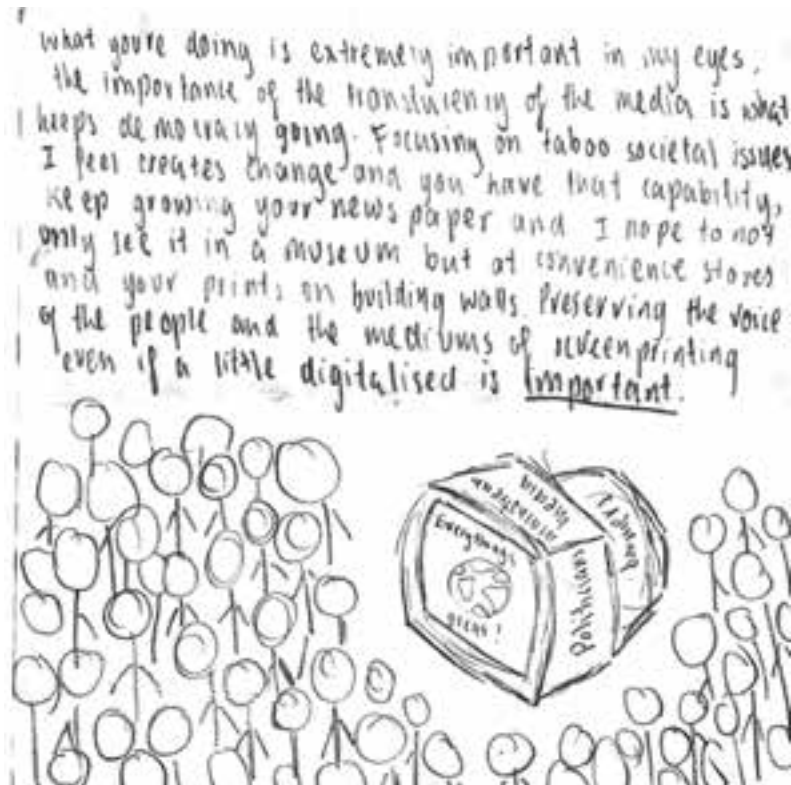 what youre doing is extremely important in my eyes.
the importance of the translucency of the media is what
keeps democracy going. Focusing on taboo societal issues
I feel creates change and you have that capability,
keep growing your news paper and I hope to not
only see it in a museum but at convenience stores
and your prints on building walls. Preserving the voice
of the people and the mediums of screenprinting
even if a little digitalised is important.
Everythings
great!
Politicians